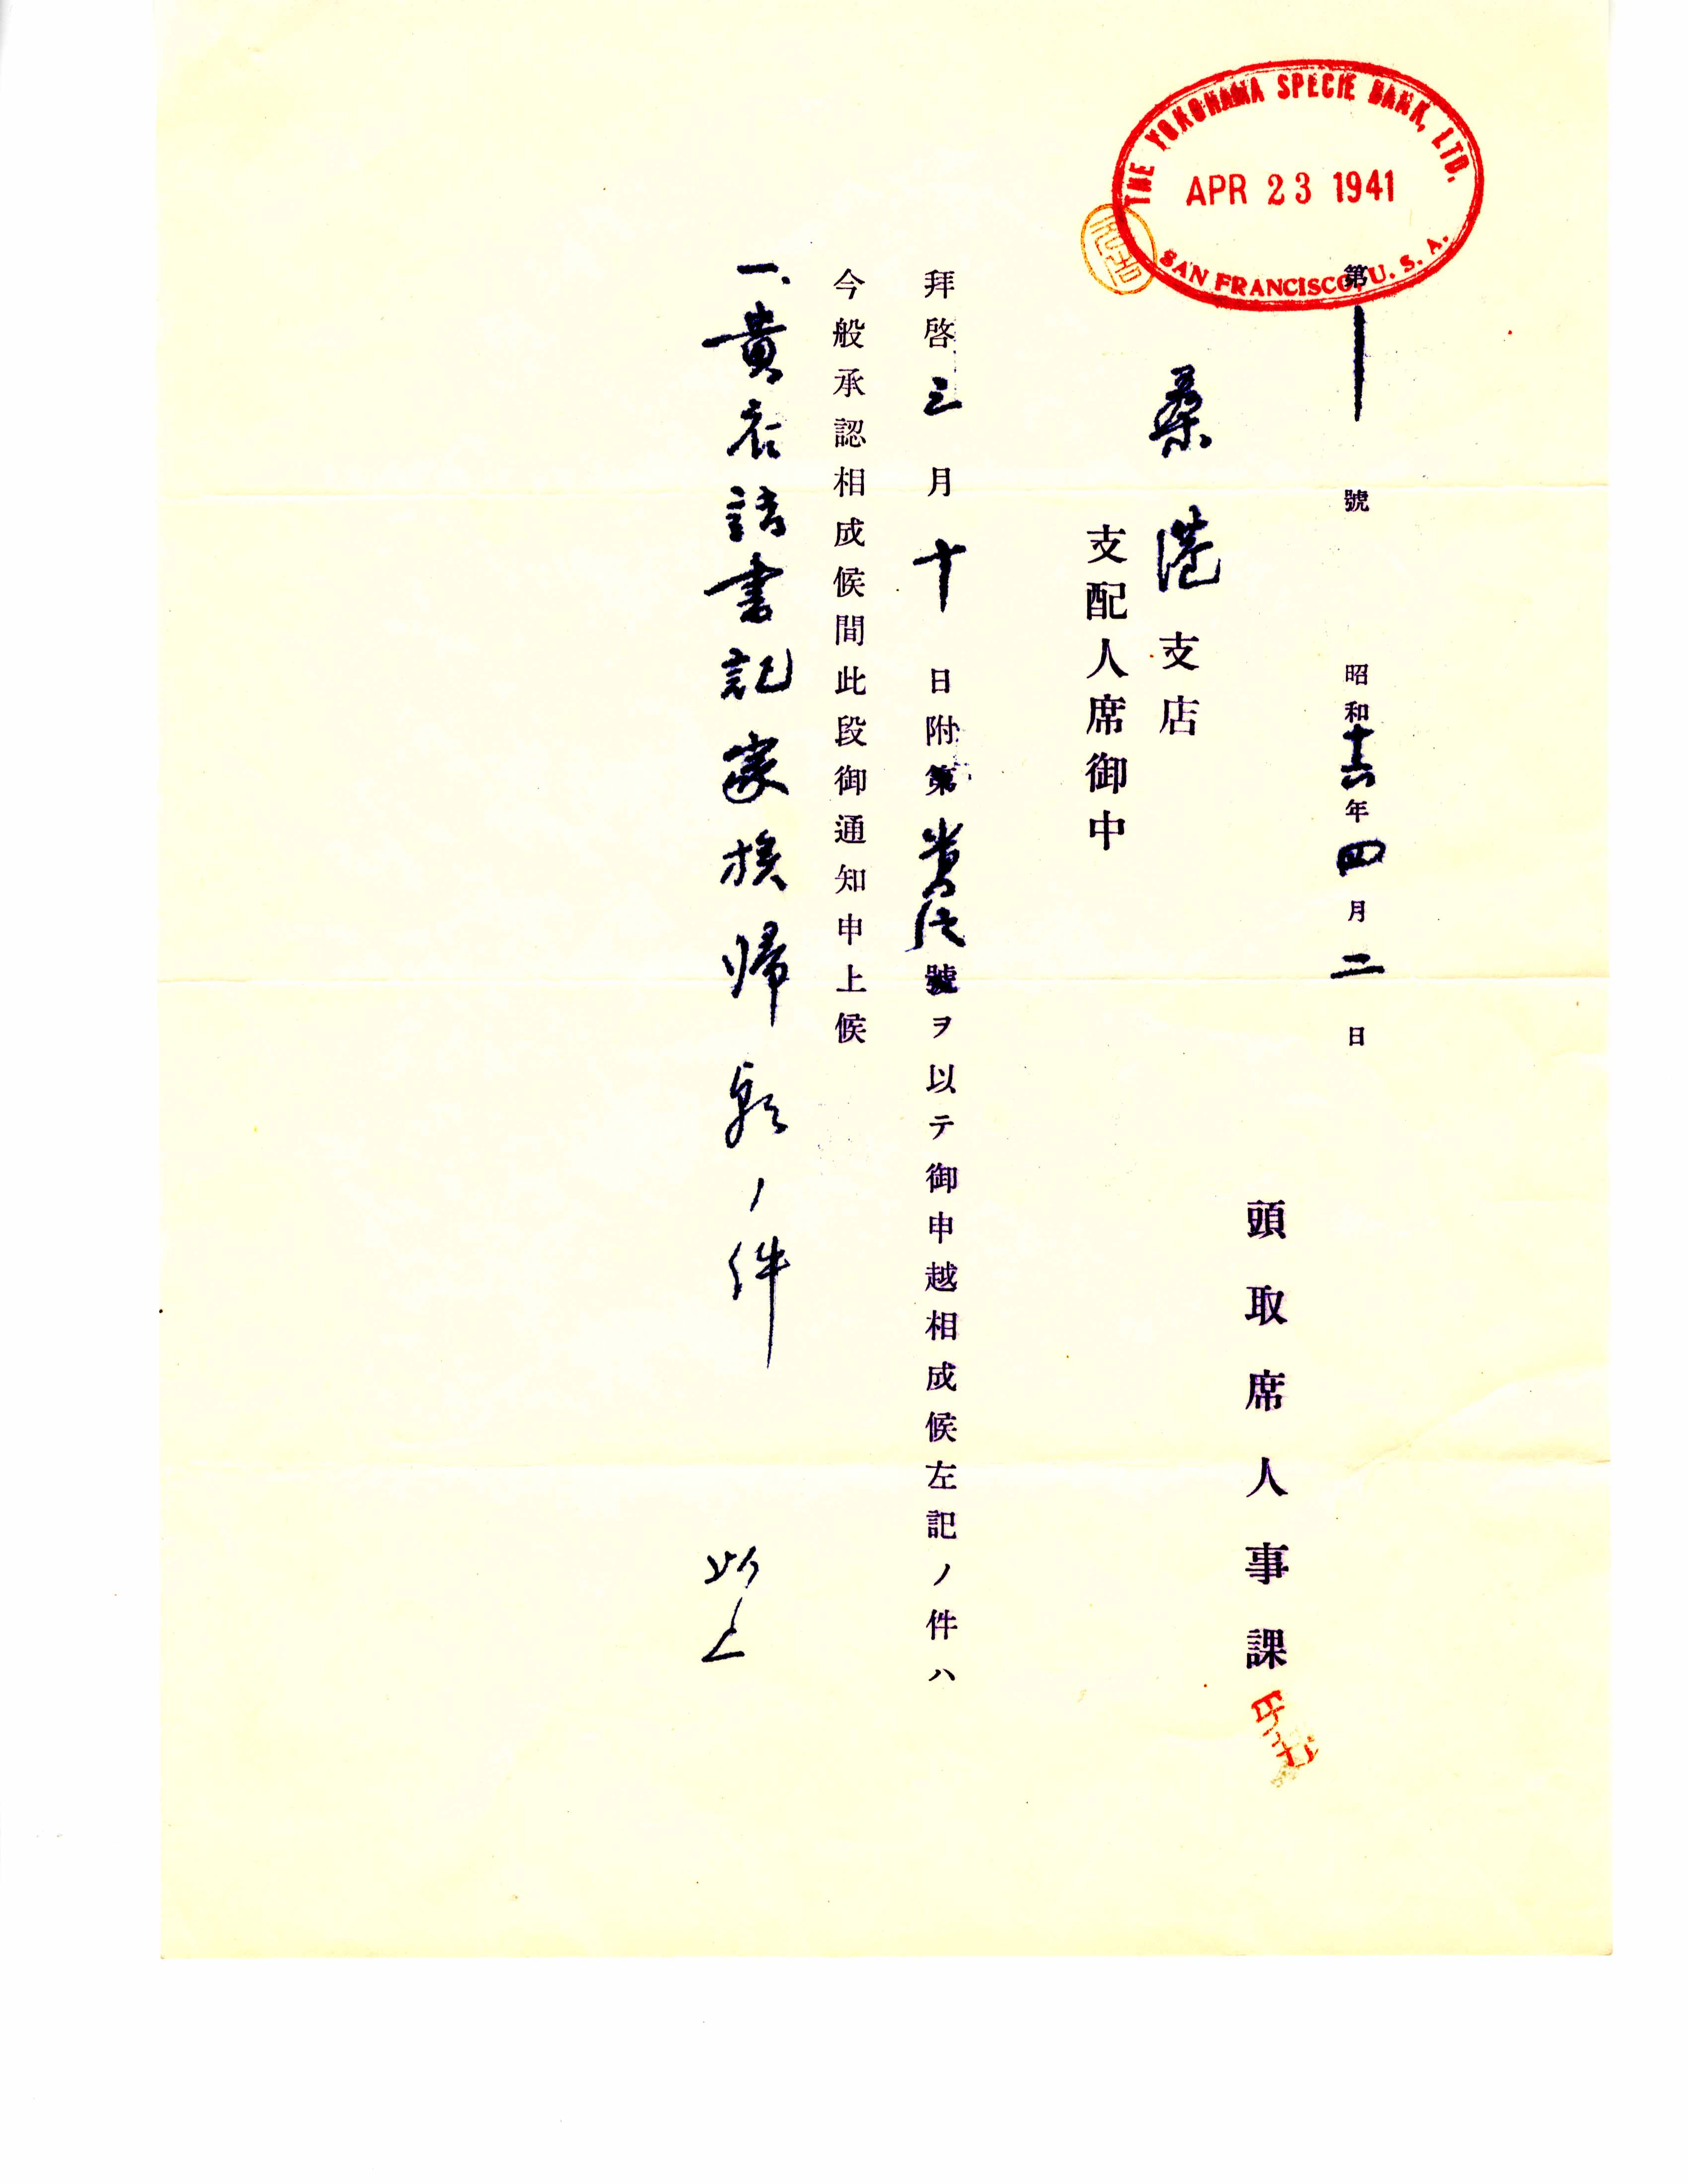 THE YOKOHAMA SPECIE BANK, LTD.
APR 23 1941
SAN FRANCISCO, U. S. A.
第 號 昭和十六年四月二日
頭取席人事課
桑港支店
支配人席御中
拝啓三月十日附第貴信號ヲ以テ御申越相成候左記ノ件ハ
今般承認相成候間此段御通知申上候
一、貴店諸書記家族帰朝ノ件
以上